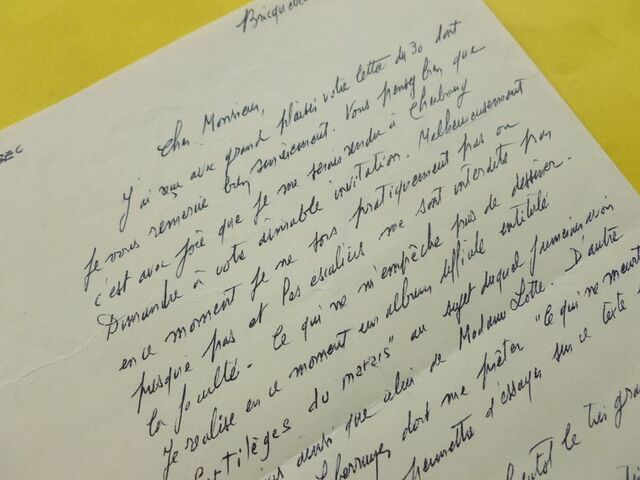 Bricquebec
BEC
Cher Monsieur,
J'ai reçu avec grand plaisir votre lettre du 30 dont
je vous remercie bien sincèrement. Vous pensez bien que
c'est avec joie que je me serais rendu à Cherbourg
Dimanche à votre aimable invitation. Malheureusement
en ce moment je ne sors pratiquement pas ou
presque pas et les escaliers me sont interdits par
la faculté. Ce qui ne m'empêche pas de dessiner.
Je réalise en ce moment un album difficile intitulé
Sortilèges du marais" au sujet duquel j'aimerais avoir
ainsi que celui de Madame Lotte. D'autre
doit me prêter "Ce qui ne meurt
permettre d'essayer sur ce texte
bientôt le très gra